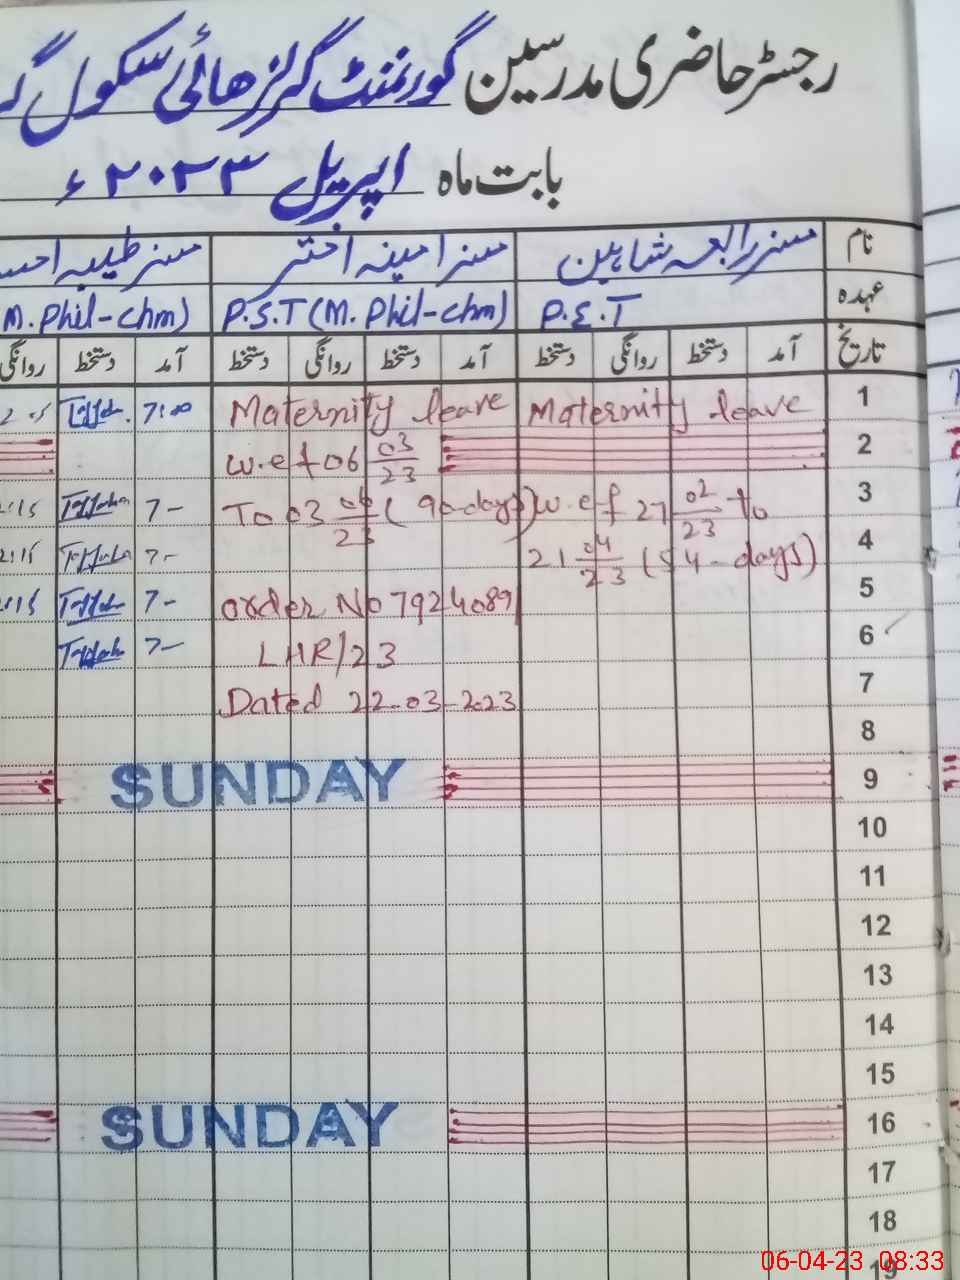 رجسٹر حاضری مدرسین گورنمنٹ گرلز ھائی سکول
بابت ماہ اپریل ۲۰۲۳ء
نام مسز رابعہ شاہین مسز امینہ اختر مسز طیبہ
عہدہ P.S.T P.S.T (M. Phil-chm) M. Phil-chm)
تاریخ آمد دستخط روانگی دستخط آمد دستخط روانگی دستخط آمد دستخط روانگی
1 Maternity leave Maternity leave 7:00
2 w.e f 06 03/23
3 w.e f 27 02/23 to To 03 06/23 (90-days) 7- 2:15
4 21 04/23 (54-days) 7- 2:15
5 order No 7924089 7- 2:15
6 LHR/23 7-
7 Dated 22-03-2023
8
9 SUNDAY
10
11
12
13
14
15
16 SUNDAY
17
18
19
06-04-23 08:33